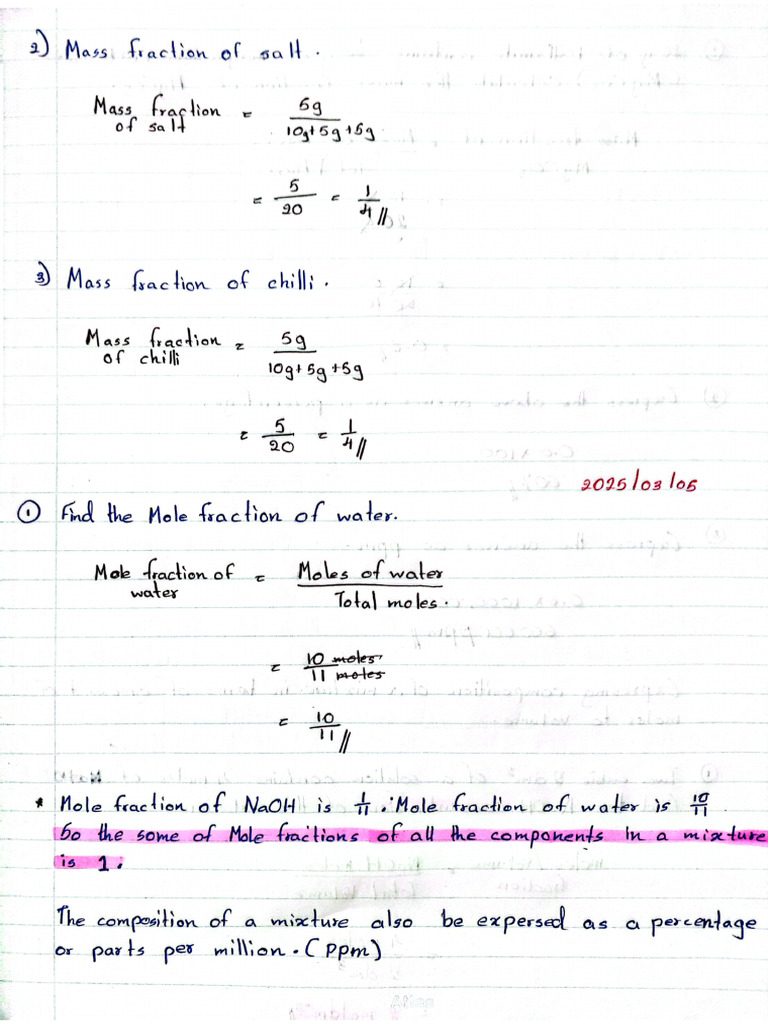 2) Mass fraction of salt.
Mass fraction of salt = 5g / 10g+5g+5g
= 5/20 = 1/4 //
3) Mass fraction of chilli.
Mass fraction of chilli = 5g / 10g+5g+5g
= 5/20 = 1/4 //
2025/03/05
① Find the Mole fraction of water.
Mole fraction of water = Moles of water / Total moles.
= 10 moles / 11 moles
= 10/11 //
* Mole fraction of NaOH is 1/11. Mole fraction of water is 10/11.
So the some of Mole fractions of all the components In a mixture
is 1.
The composition of a mixture also be expersed as a percentage
or parts per million. (ppm)